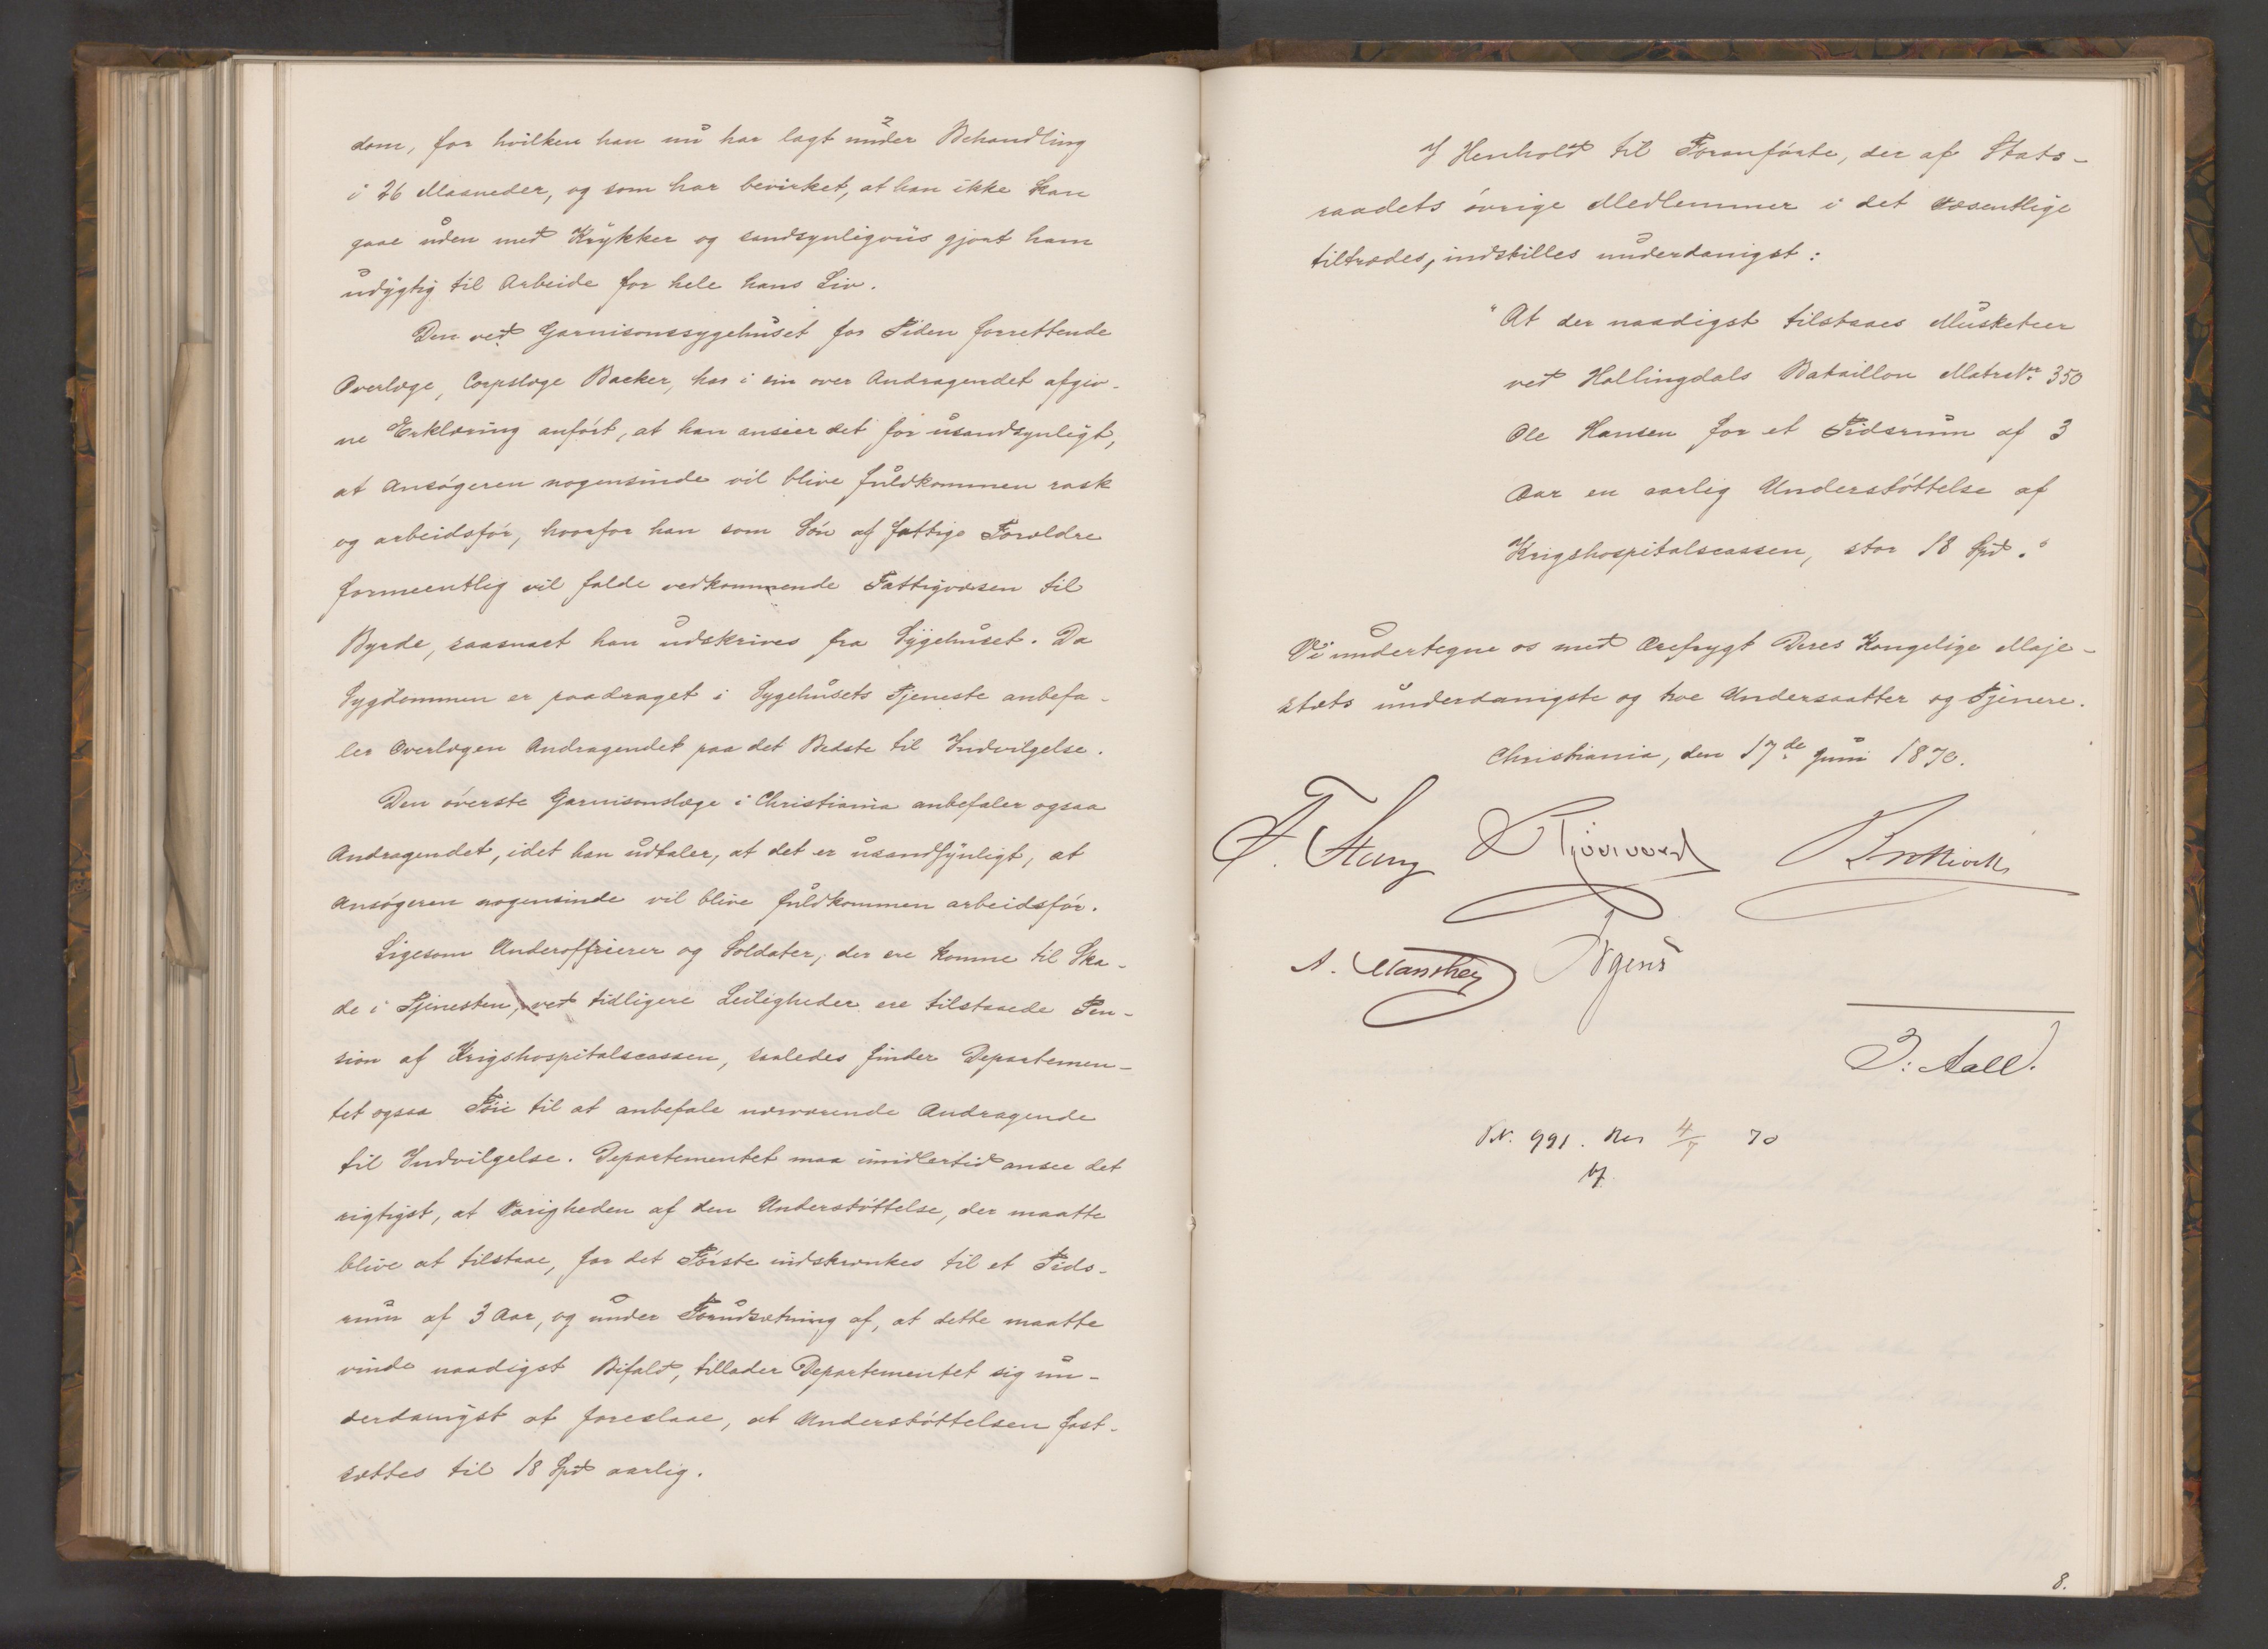 dom, for hvilken han nu har lagt under Behandling
i 26 Maaneder, og som har bevirket, at han ikke kan
gaae uden med Krykker og sandsynligviis gjort ham
udygtig til Arbeide for hele hans Liv.
Den ved Garnisonssygehuset for Tiden forrettende
Overlæge, Corpslæge Backer, har i sin over Andragendet afgiv-
ne Erklæring anført, at han anseer det for usandsynligt,
at Ansøgeren nogensinde vil blive fuldkommen rask
og arbeidsfør, hvorfor han som Søn af fattige Forældre
formeentlig vil falde vedkommende Fattigvæsen til
Byrde, saasnart han udskrives fra Sygehuset. Da
Sygdommen er paadraget i Sygehusets Tjeneste anbefa-
ler Overlægen Andragendet paa det Bedste til Indvilgelse.
Den øverste Garnisonslæge i Christiania anbefaler ogsaa
Andragendet, idet han udtaler, at det er usandsynligt, at
Ansøgeren nogensinde vil blive fuldkommen arbeidsfør.
Ligesom Underofficierer og Soldater, der ere komne til Ska-
de i Tjenesten, ved tidligere Leiligheder ere tilstaaede Pen-
sion af Krigshospitalscassen, saaledes finder Departemen-
tet ogsaa Føie til at anbefale nærværende Andragende
til Indvilgelse. Departementet maa imidlertid ansee det
rigtigst, at Varigheden af den Understøttelse, der maatte
blive at tilstaae, for det Første indskrænkes til et Tids-
rum af 3 Aar, og under Forudsætning af, at dette maatte
vinde naadigst Bifald, tillader Departementet sig un-
derdanigst at foreslaae, at Understøttelsen fast-
sættes til 18 Spd aarlig.
I Henhold til Foranførte, der af Stats-
raadets øvrige Medlemmer i det Væsentlige
tiltrædes, indstilles underdanigst:
"At der naadigst tilstaaes Musketeer
ved Hallingdals Bataillon Matr. Nr. 350
Ole Hansen for et Tidsrum af 3
Aar en aarlig Understøttelse af
Krigshospitalscassen, stor 18 Spd."
Vi undertegne os med Ærefrygt Deres Kongelige Maje-
stæts underdanigste og troe Undersaatter og Tjenere.
Christiania, den 17de Juni 1870.
F. Stang
A. Manthey Irgens
J. Aall.
N. 991. Res 4/7 70
8.